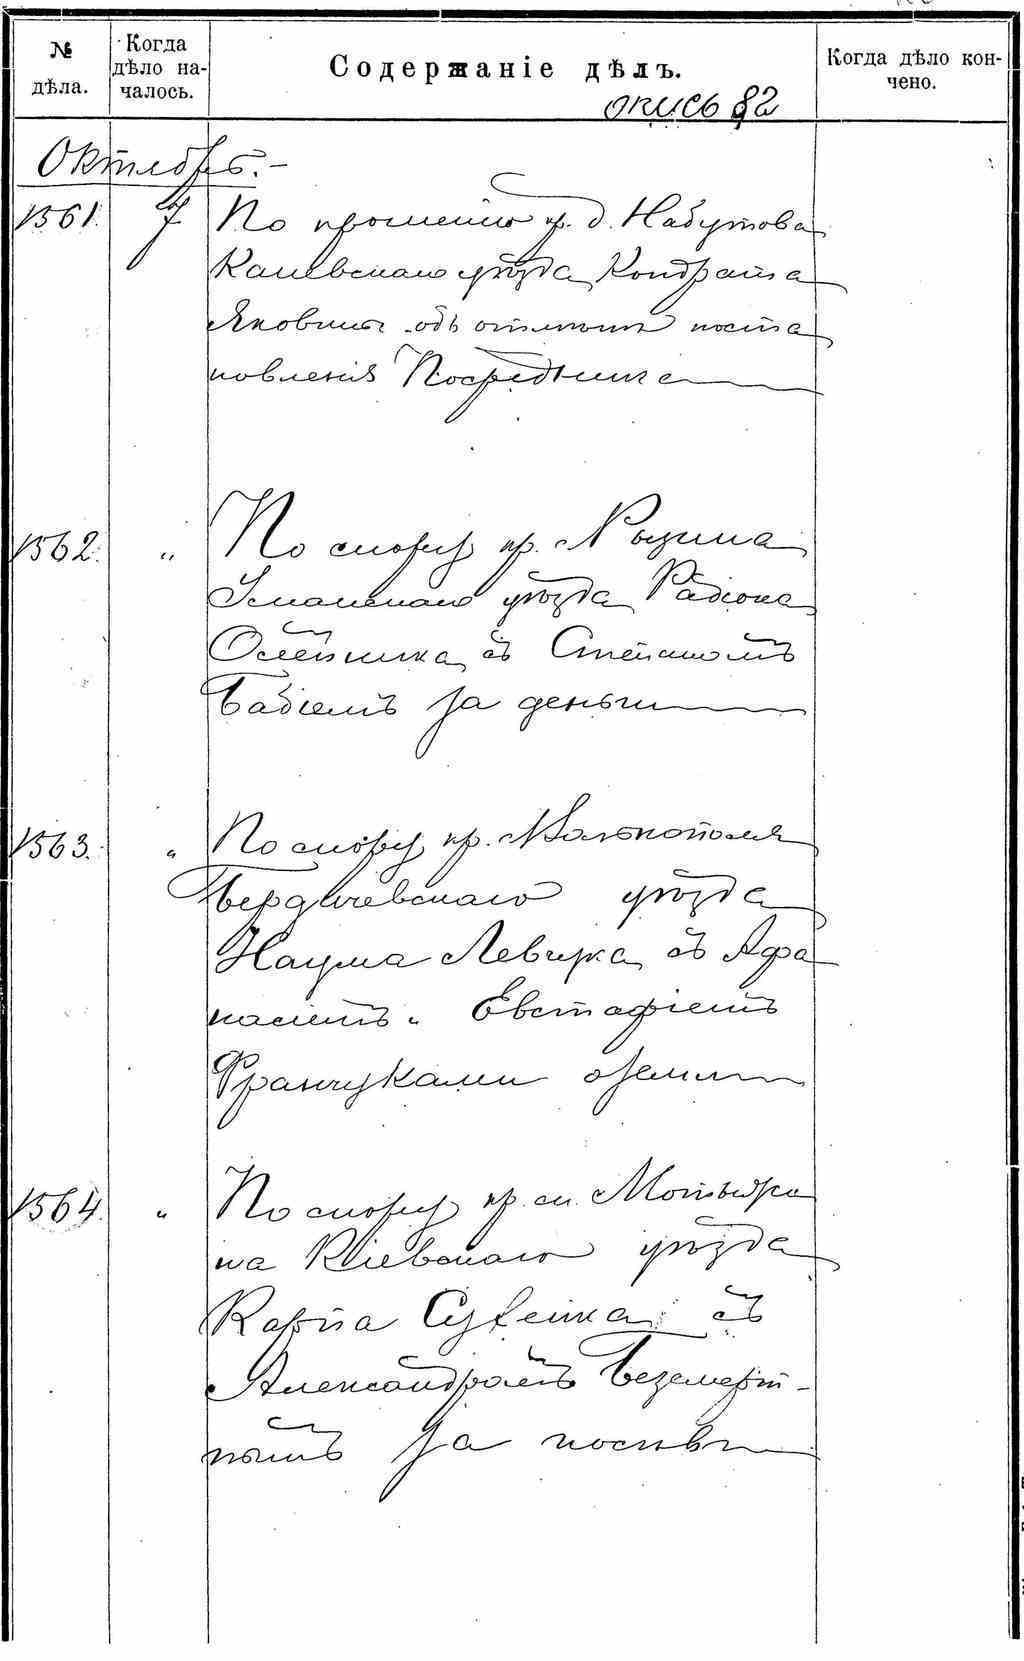 № дѣла.
Когда дѣло на-
чалось.
Содержаніе дѣлъ.
Когда дѣло кон-
чено.
опись 82
Октябрь.-
1561. 7 По прошенію кр. д. Набутова
Каневскаго уѣзда Кондрата
объ отмѣнѣ поста
новленія Посредника
1562. „ По спору кр. с. Рыжина
Уманскаго уѣзда Радіона
Олейника съ Степаномъ
Бабіемъ за деньги
1563. „ По спору кр. м.
Бердичевскаго уѣзда
Наума Левчука съ Афа
насіемъ и Евстафіемъ
Франчуками о земли
1564. „ По спору кр. м. Мотыжи
на Кіевскаго уѣзда
Карпа съ
Александромъ Безсмерт-
нымъ за посѣвы